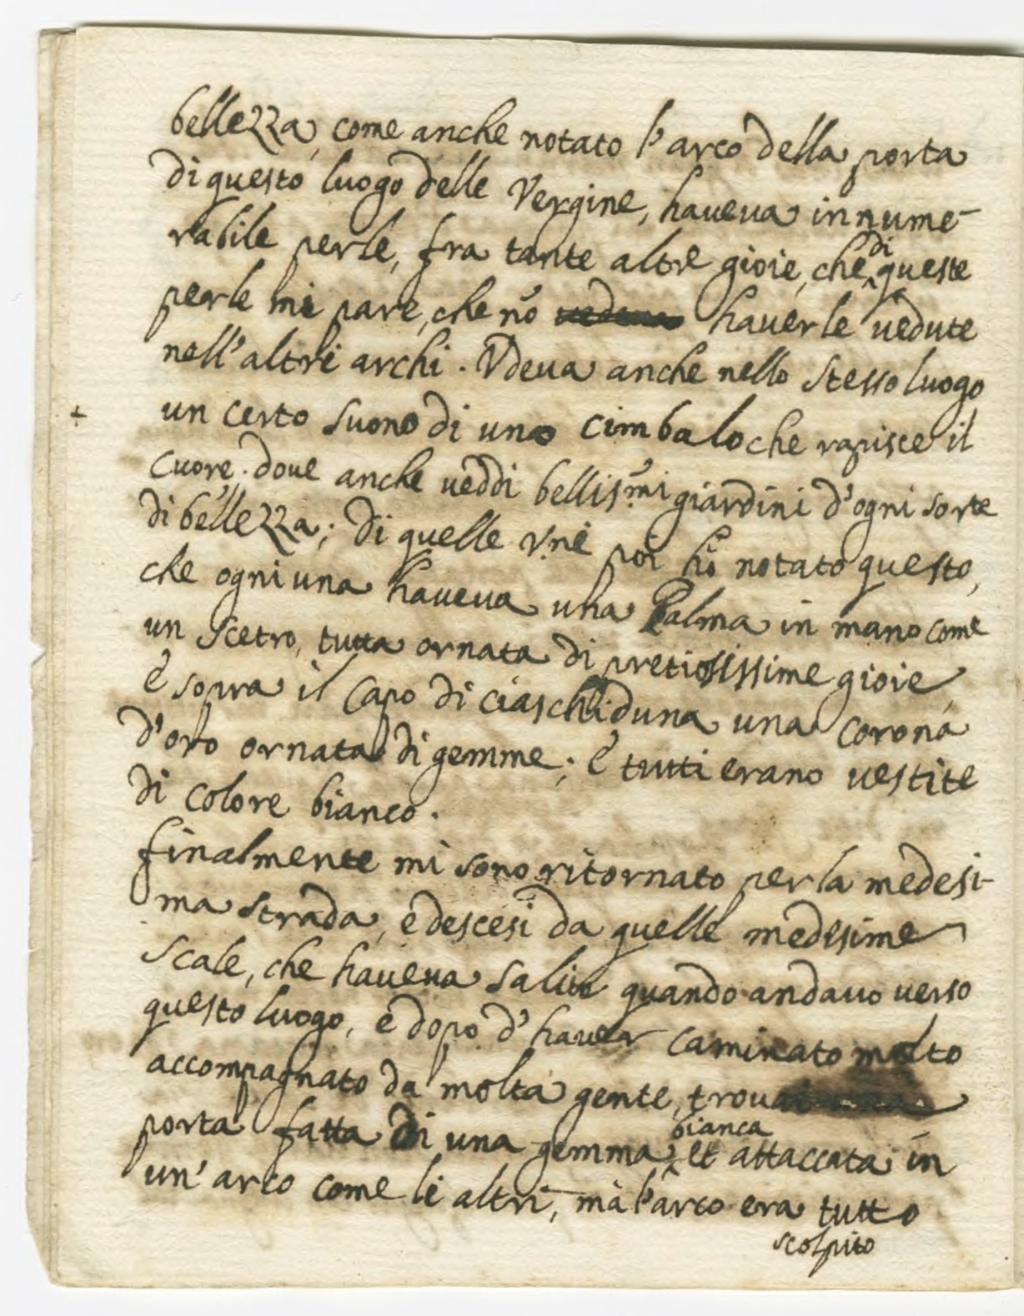 bellezza, come anche notato l'arco della porta
di questo luogo delle Vergine, haueua innume-
rabile perle, fra tante altre gioie, che di queste
perle mi pare, che nō hauerle vedute
nell'altri archi. Vdeua anche nello stesso luogo
+ un certo suono di uno cimbalo che rapisce il
cuore. doue anche ueddi bellis.mi giardini d'ogni sorte
di bellezza; di quelle V.ni poi hò notato questo,
che ogni una haueua una Palma in mano come
un scetro, tutta ornata di pretiosissime gioie
è sopra il capo di ciascheduna una corona
d'oro ornata di gemme; è tutti erano vestite
di colore bianco.
finalmente mi sono ritornato per la medesi-
ma strada, e descesi da quelle medesime
scale, che haueua salito quando andauo uerso
questo luogo, e dopo d'hauer caminato molto
accompagnato da molta gente, trouai una
porta fatta di una gemma bianca et attaccata in
un'arco come li altri, mà l'arco era tutto
scolpito